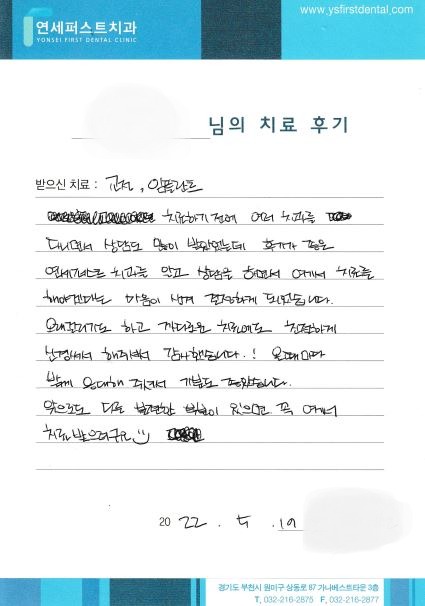 www.ysfirstdental.com
연세퍼스트치과
YONSEI FIRST DENTAL CLINIC
님의 치료 후기
받으신 치료 : 교정, 임플란트
치료하기전에 여러 치과를
다니면서 상담도 많이 받았었는데 후기가 좋은
연세퍼스트 치과를 알고 상담을 하면서 여기서 치료를
해야겠다는 마음이 생겨 결정하게 되었습니다.
오래걸리기도 하고 까다로운 치료에도 친절하게
신경써서 해주셔서 감사했습니다.! 올때마다
밝게 응대해 주셔서 기분도 좋았습니다.
앞으로도 다른 불편한 부분이 있으면 꼭 여기서
치료받으려구요
20 22 . 5 . 19
경기도 부천시 원미구 상동로 87 가나베스트타운 3층
T. 032-216-2875 F. 032-216-2877